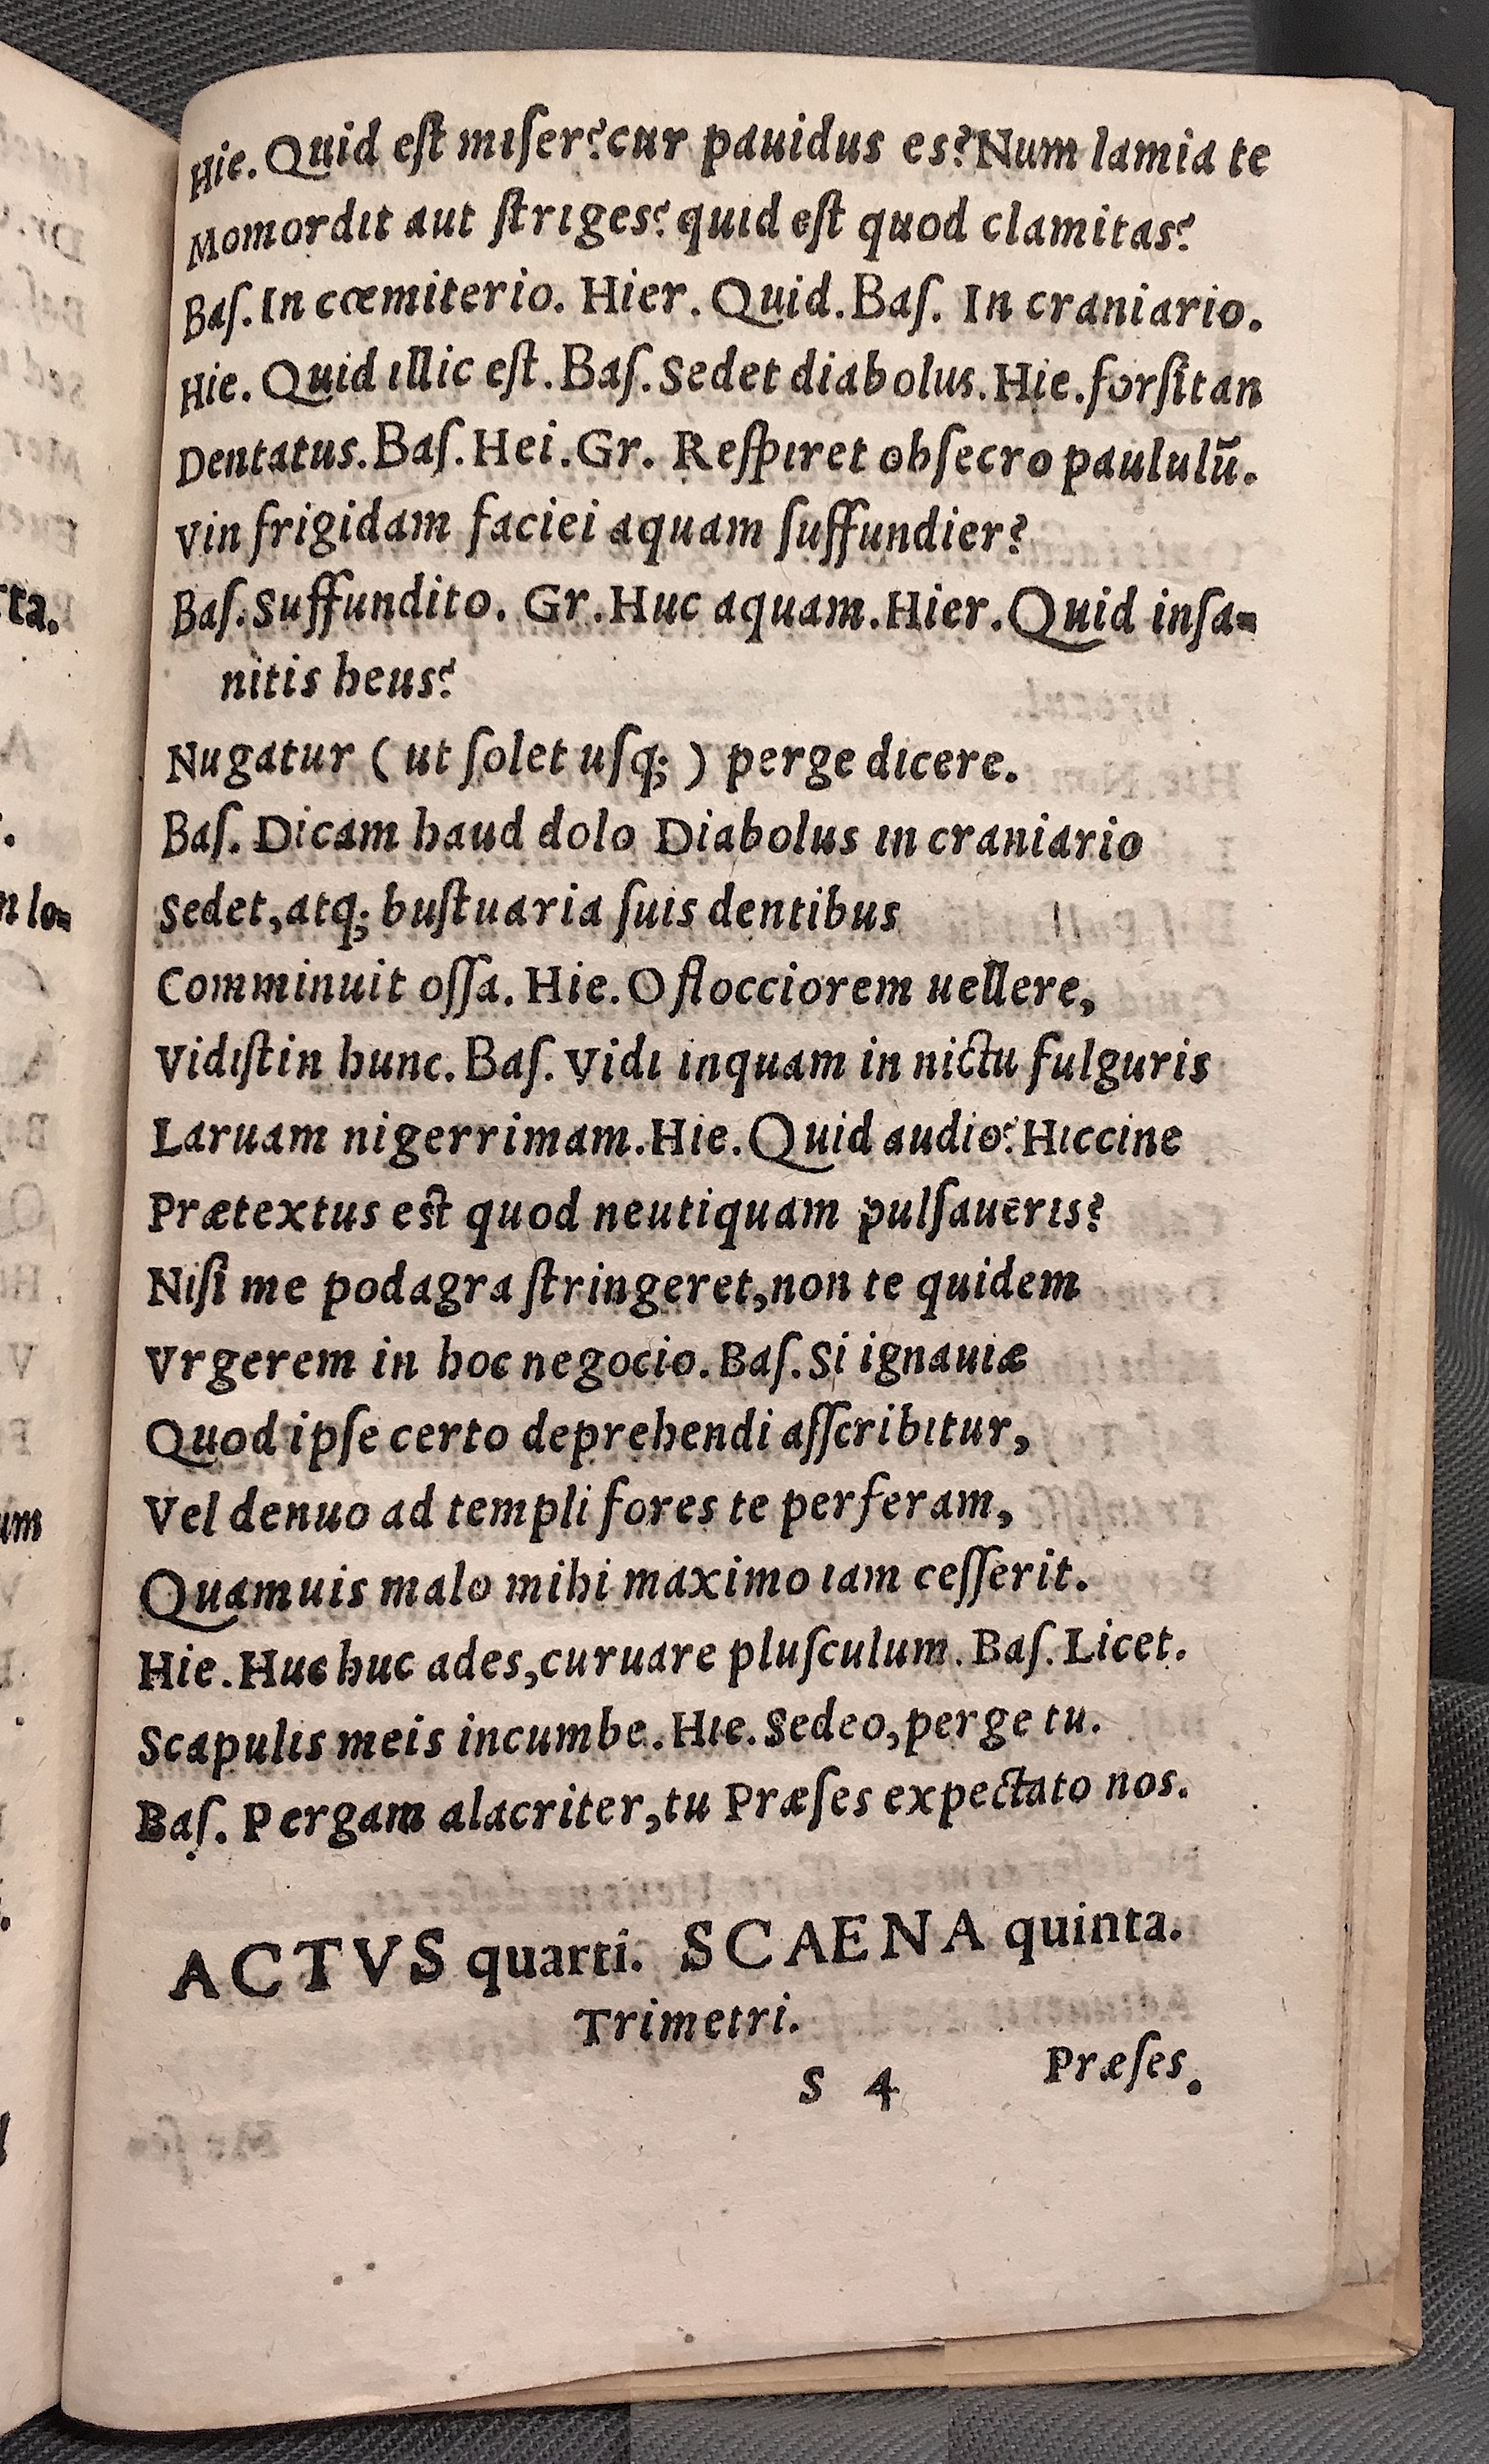 Hie. Quid eſt miſer? cur pauidus es? Num lamia te
Momordit aut ſtriges? quid eſt quod clamitas?
Baſ. In cœmiterio. Hier. Quid. Baſ. In craniario.
Hie. Quid illic eſt. Baſ. Sedet diabolus. Hie. forſitan
Dentatus. Baſ. Hei. Gr. Reſpiret obſecro paululū.
Vin frigidam faciei aquam ſuffundier?
Baſ. Suffundito. Gr. Huc aquam. Hier. Quid inſa-
nitis heus?
Nugatur ( ut ſolet uſq; ) perge dicere.
Baſ. Dicam haud dolo Diabolus in craniario
Sedet, atq; buſtuaria ſuis dentibus
Comminuit oſſa. Hie. O flocciorem uellere,
Vidiſtin hunc. Baſ. Vidi inquam in nictu fulguris
Laruam nigerrimam. Hie. Quid audio? Hiccine
Prætextus eſt quod neutiquam pulſaueris?
Niſi me podagra ſtringeret, non te quidem
Vrgerem in hoc negocio. Baſ. Si ignauiæ
Quod ipſe certo deprehendi aſſcribitur,
Vel denuo ad templi fores te perferam,
Quamuis malo mihi maximo iam ceſſerit.
Hie. Huc huc ades, curuare pluſculum. Baſ. Licet.
Scapulis meis incumbe. Hie. Sedeo, perge tu.
Baſ. Pergam alacriter, tu Præſes expectato nos.
ACTVS quarti. SCAENA quinta.
Trimetri.
S 4 Præſes.